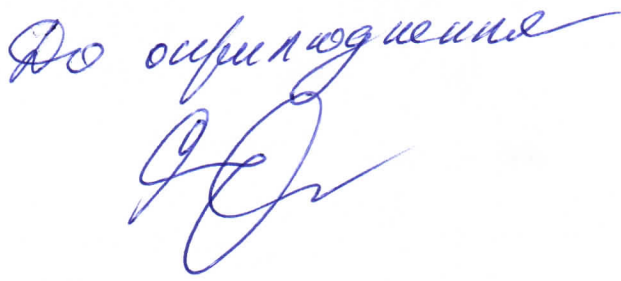 До оприлюднення